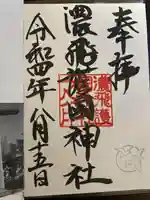 奉拝
濃飛護國神社
令和四年八月十五日